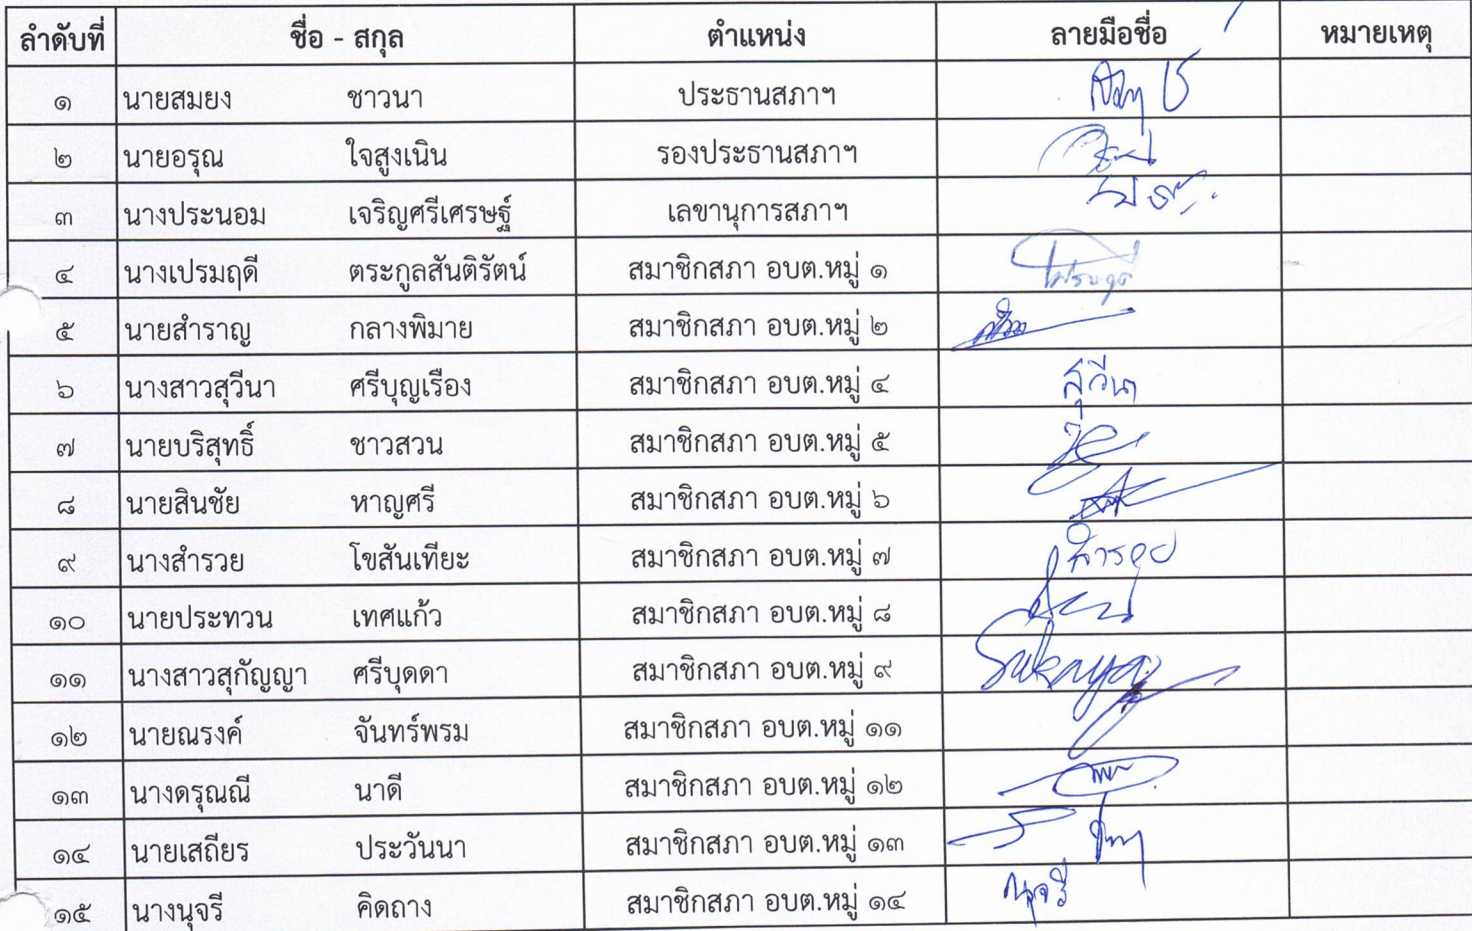 ลำดับที่ ชื่อ - สกุล ตำแหน่ง ลายมือชื่อ หมายเหตุ
๑ นายสมยง ชาวนา ประธานสภาฯ
๒ นายอรุณ ใจสูงเนิน รองประธานสภาฯ
๓ นางประนอม เจริญศรีเศรษฐ์ เลขานุการสภาฯ
๔ นางเปรมฤดี ตระกูลสันติรัตน์ สมาชิกสภา อบต.หมู่ ๑ เปรมฤดี
๕ นายสำราญ กลางพิมาย สมาชิกสภา อบต.หมู่ ๒
๖ นางสาวสุวีนา ศรีบุญเรือง สมาชิกสภา อบต.หมู่ ๔ สุวีนา
๗ นายบริสุทธิ์ ชาวสวน สมาชิกสภา อบต.หมู่ ๕
๘ นายสินชัย หาญศรี สมาชิกสภา อบต.หมู่ ๖
๙ นางสำรวย โขสันเทียะ สมาชิกสภา อบต.หมู่ ๗ สำรวย
๑๐ นายประทวน เทศแก้ว สมาชิกสภา อบต.หมู่ ๘
๑๑ นางสาวสุกัญญา ศรีบุดดา สมาชิกสภา อบต.หมู่ ๙ Sukanya
๑๒ นายณรงค์ จันทร์พรม สมาชิกสภา อบต.หมู่ ๑๑
๑๓ นางดรุณณี นาดี สมาชิกสภา อบต.หมู่ ๑๒
๑๔ นายเสถียร ประวันนา สมาชิกสภา อบต.หมู่ ๑๓
๑๕ นางนุจรี คิดถาง สมาชิกสภา อบต.หมู่ ๑๔ นุจรี